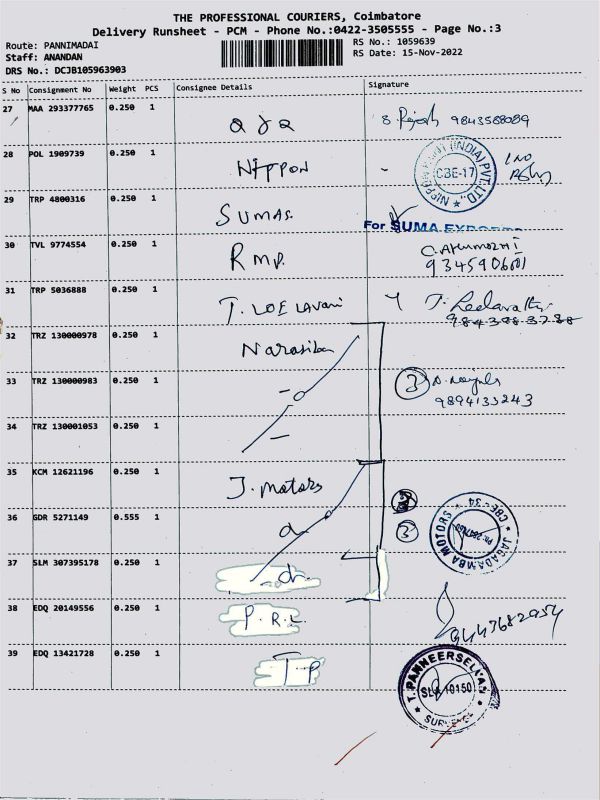 THE PROFESSIONAL COURIERS, Coimbatore
Delivery Runsheet - PCM - Phone No.:0422-3505555 - Page No.:3
Route: PANNIMADAI
RS No.: 1059639
Staff: ANANDAN
RS Date: 15-Nov-2022
DRS No.: DCJB105963903
S No Consignment No Weight PCS Consignee Details Signature
27 MAA 293377765 0.250 1
9843588089
28 POL 1909739 0.250 1 NIPPON
NIPPON PAINT (INDIA) PVT. LTD.
CBE-17
29 TRP 4800316 0.250 1 SUMAS.
For SUMA EXPORTS
30 TVL 9774554 0.250 1 RMP.
31 TRP 5036888 0.250 1
32 TRZ 130000978 0.250 1
33 TRZ 130000983 0.250 1 3
9894133243
34 TRZ 130001053 0.250 1
35 KCM 12621196 0.250 1 J. Motors
36 GDR 5271149 0.555 1 3
JAGADAMBA MOTORS CBE-34
37 SLM 307395178 0.250 1
38 EDQ 20149556 0.250 1 P.R.L
39 EDQ 13421728 0.250 1 T.P
T. PANNEERSELVAM
SLA 10150